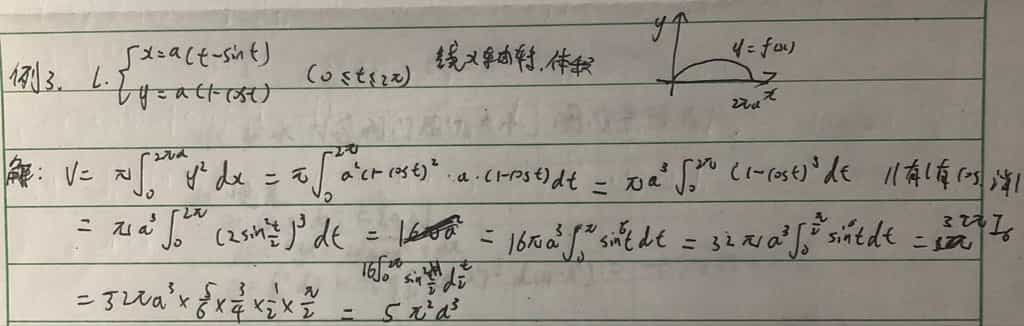 例3. L. { x=a(t-sint) y=a(1-cost) (0≤t≤2π) 绕x轴旋转.体积
y y=f(x) 2πa x
解: V= π∫₀^{2πa} y² dx = π∫₀^{2π} a²(1-cost)²·a·(1-cost)dt = πa³∫₀^{2π} (1-cost)³dt
= πa³∫₀^{2π} (2sin²t/2)³ dt = = 16πa³∫₀^π sin⁶t dt = 32πa³∫₀^{π/2} sin⁶t dt = 32π I₆
16∫₀^{2π} sin⁶ t/2 d t/2
= 32πa³ × 5/6 × 3/4 × 1/2 × π/2 = 5π²a³